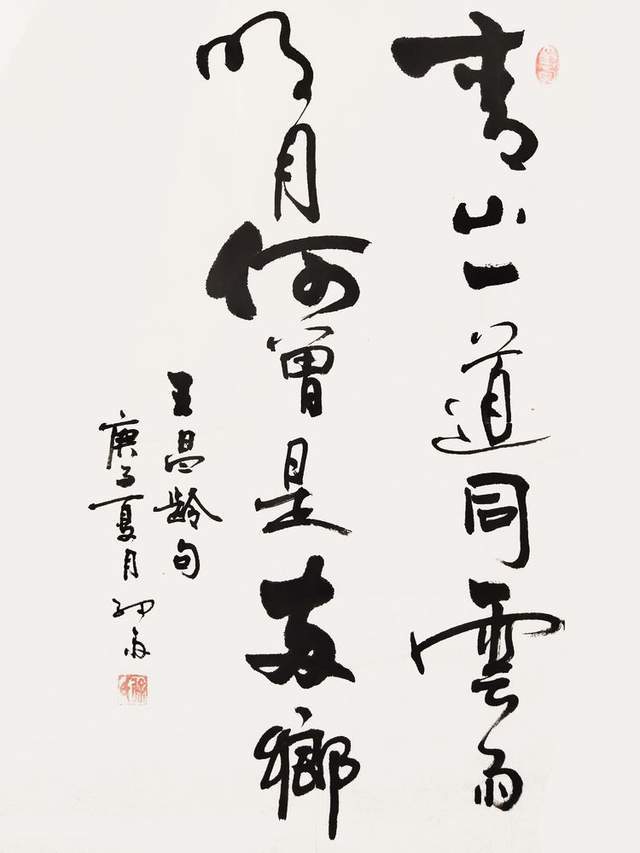 青山一道同雲雨
明月何曾是两鄉
王昌龄句
庚子夏月